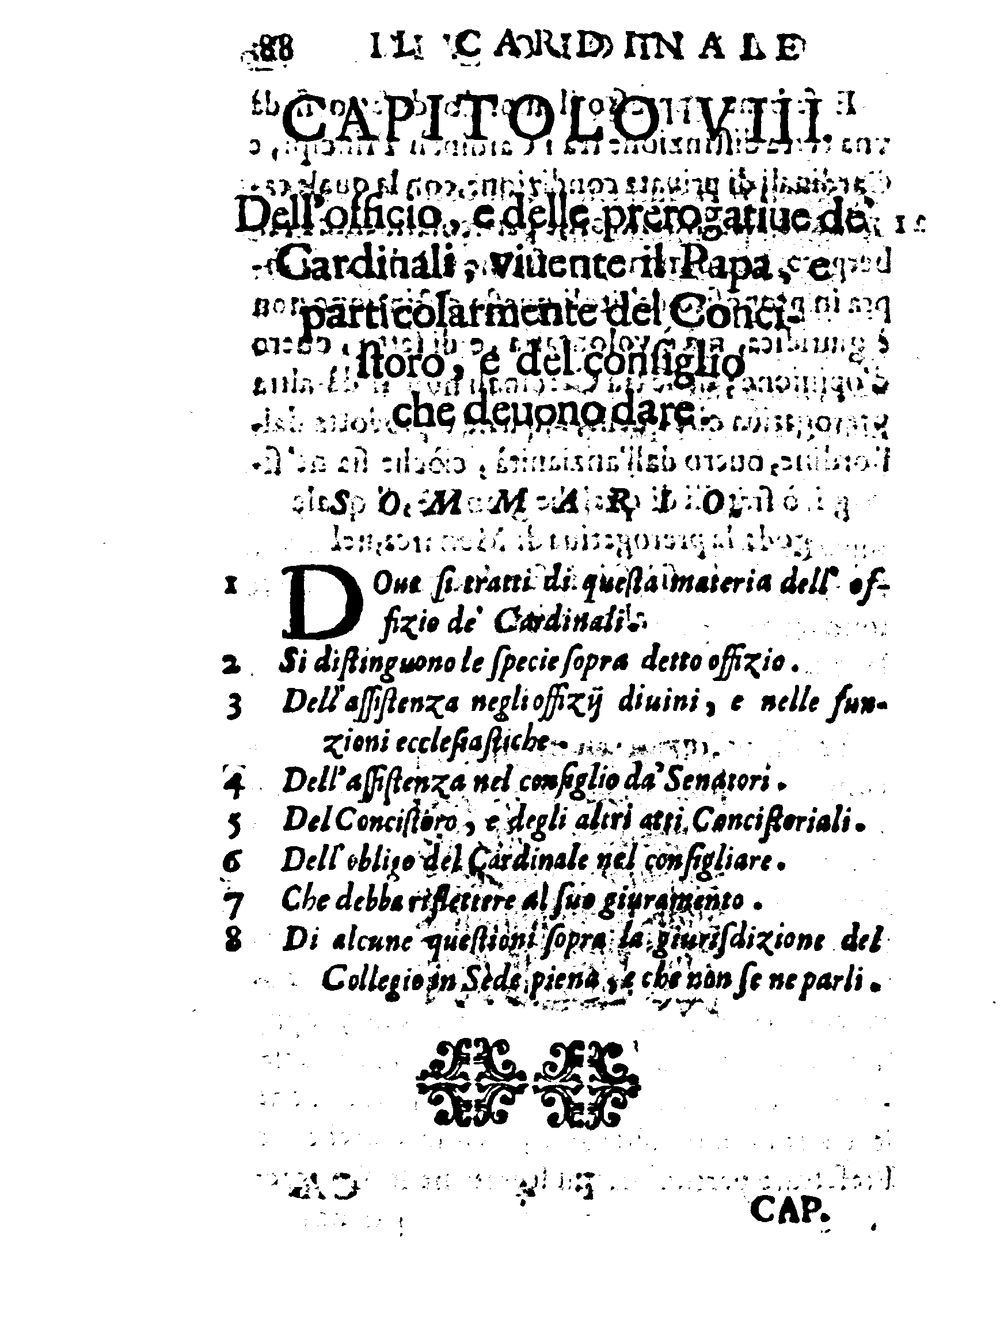 88 IL CARDINALE
CAPITOLO VIII.
Dell'officio, e delle prerogatiue de'
Cardinali, viuente il Papa, e
particolarmente del Conci-
ſtoro, e del conſiglio
che deuono dare.
SOMMARIO.
1 DOue ſi tratti di queſta materia dell' of-
fizio de' Cardinali.
2 Si diſtinguono le ſpecie ſopra detto offizio.
3 Dell'aſſiſtenza negli offizÿ diuini, e nelle fun-
zioni eccleſiaſtiche.
4 Dell'aſſiſtenza nel conſiglio da' Senatori.
5 Del Conciſtoro, e degli altri atti Conciſtoriali.
6 Dell'obligo del Cardinale nel conſigliare.
7 Che debba riflettere al ſuo giuramento.
8 Di alcune queſtioni ſopra la giuriſdizione del
Collegio in Sede piena, e che non ſe ne parli.
CAP.